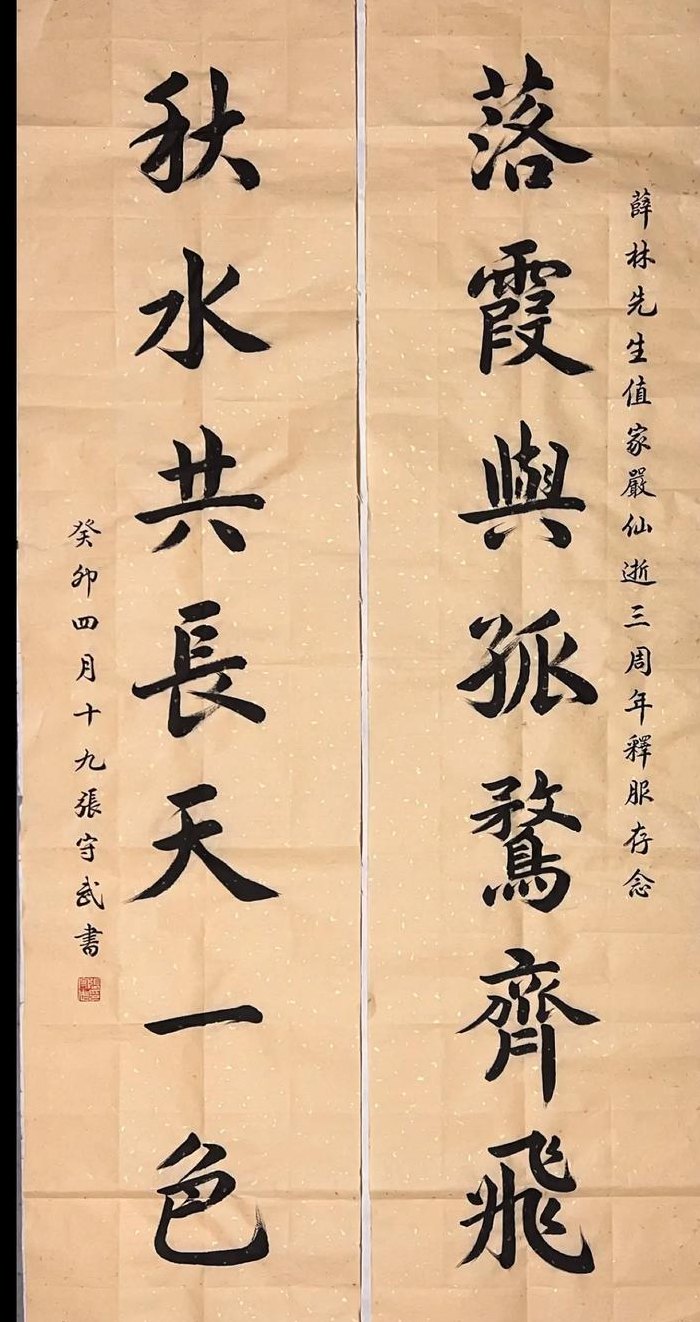 薛林先生值家嚴仙逝三周年釋服存念
落霞與孤鶩齊飛
秋水共長天一色
癸卯四月十九張守武書